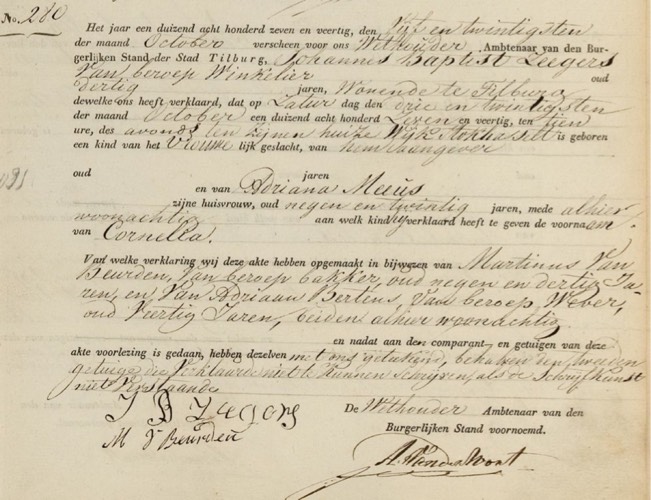 No. 280
Het jaar een duizend acht honderd zeven en veertig, den Vijf en twintigsten
der maand October verscheen voor ons Wethouder Ambtenaar van den Bur-
gerlijken Stand der Stad Tilburg, Johannes Baptist Zeegers
Van beroep Winkelier oud
dertig jaren, Wonende te Tilburg
dewelke ons heeft verklaard, dat op Zatur dag den drie en twintigsten
der maand October een duizend acht honderd Zeven en veertig, ten tien
ure, des avonds in zijnen huize Wijk Stokhasselt is geboren
een kind van het Vrouwe lijk geslacht, van hem aangever
oud jaren
en van Adriana Meeùs
zijne huisvrouw, oud negen en twintig jaren, mede alhier
woonachtig aan welk kind hij verklaard heeft te geven de voornaam
van Cornelia.
Van welke verklaring wij deze akte hebben opgemaakt in bijwezen van Martinus Van
Beurden, Van beroep bakker, oud negen en dertig Ja-
ren, en Van Adriaan Bertens, Van beroep Wever,
oud Veertig Jaren, beiden alhier woonachtig
en nadat aan den comparant en getuigen van deze
akte voorlezing is gedaan, hebben dezelven met ons getekend, behalven den tweeden
getuige die Verklaarde niet te kunnen schrijven, als de Schrijfkunst
niet Verstaande
J B Zegers
M V Beurden
De Wethouder Ambtenaar van den
Burgerlijken Stand voornoemd.